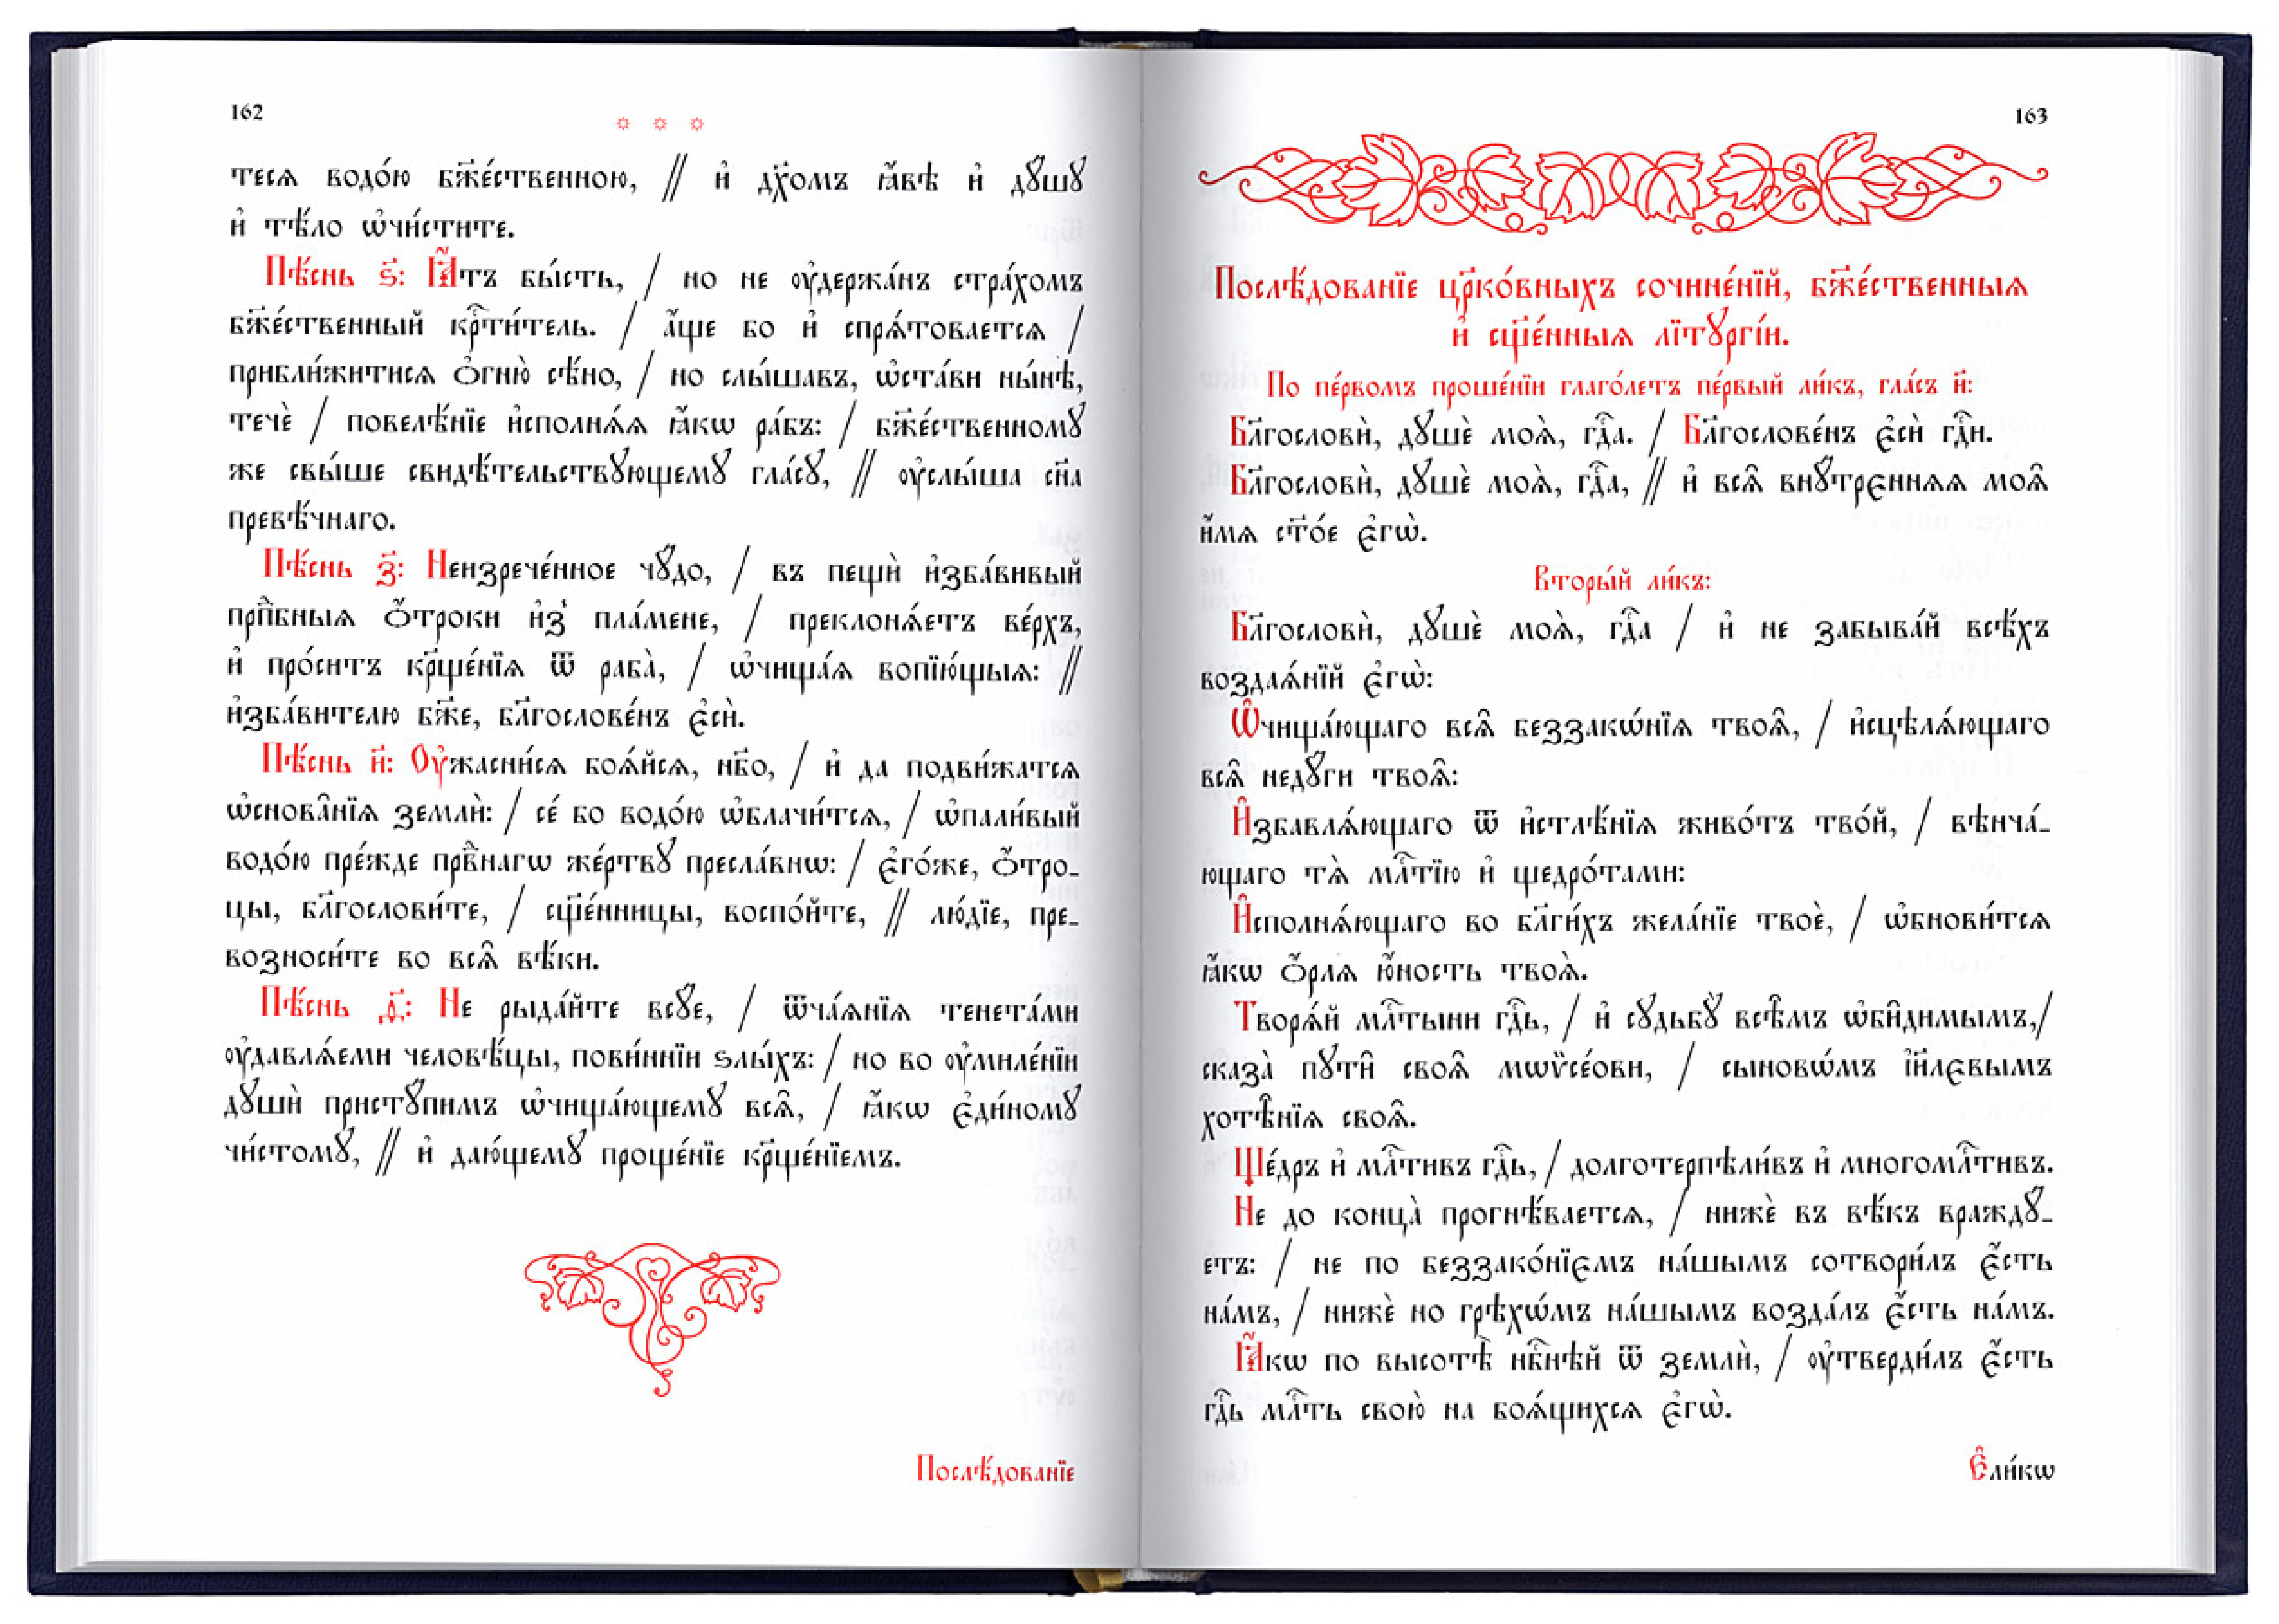 162
тесѧ водо́ю бж҃е́ственною, // и҆ дх҃омъ ꙗ҆́вѣ и҆ дꙋ́шꙋ
и҆ тѣ́ло ѡ҆чи́стите.
Пѣ́снь ѕ҃: Ꙗ҆́тъ бы́сть, / но не ᲂу҆держа́нъ стра́хомъ
бж҃е́ственный крⷭ҇ти́тель. / а҆́ще бо и҆ спрѧ́товаетсѧ /
прибли́житисѧ ѻ҆гню̀ сѣ́но, / но слы́шавъ, ѡ҆ста́ви ны́нѣ,
течѐ / повелѣ́нїе и҆сполнѧ́ѧ ꙗ҆́кѡ ра́бъ: / бж҃е́ственномꙋ
же свы́ше свидѣ́тельствꙋющемꙋ гла́сꙋ, // ᲂу҆слы́ша сн҃а
превѣ́чнаго.
Пѣ́снь з҃: Неизрече́нное чꙋ́до, / въ пещѝ и҆зба́вивый
прпⷣбныѧ ѻ҆́троки и҆з̾ пла́мене, / преклонѧ́етъ ве́рхъ,
и҆ про́ситъ крⷭ҇ще́нїѧ ѿ раба̀, / ѡ҆чища́ѧ вопїю́щыѧ: //
и҆зба́вителю бж҃е, блгⷭ҇ослове́нъ є҆сѝ.
Пѣ́снь и҃: Оу҆жасни́сѧ боѧ́йсѧ, нб҃о, / и҆ да подви́жатсѧ
ѡ҆снова̑нїѧ землѝ: / се́ бо водо́ю ѡ҆блачи́тсѧ, / ѡ҆пали́вый
водо́ю пре́жде првⷣнагѡ же́ртвꙋ пресла́внѡ: / є҆го́же, ѻ҆́тро-
цы, бл҃гослови́те, / сщ҃е́нницы, воспо́йте, // лю́дїе, пре-
возноси́те во всѧ̑ вѣ́ки.
Пѣ́снь д҃: Не рыда́йте всꙋ́е, / ѿча́ѧнїѧ тенета́ми
ᲂу҆давлѧ́еми человѣ́цы, пови́ннїи ѕлы́хъ: / но во ᲂу҆миле́нїи
дꙋшѝ пристꙋ́пимъ ѡ҆чища́ющемꙋ всѧ̑, / ꙗ҆́кѡ є҆ди́номꙋ
чи́стомꙋ, // и҆ даю́щемꙋ проще́нїе крⷭ҇ще́нїемъ.
Послѣ́дованїе
163
Послѣ́дованїе цр҃ко́вныхъ сочине́нїй, бж҃е́ственныѧ
и҆ сщ҃е́нныѧ лїтꙋргі́и.
По пе́рвомъ проше́нїи глаго́летъ пе́рвый ли́къ, гла́съ и҃:
Бл҃гословѝ, дꙋшѐ моѧ̀, гдⷭ҇а. / Бл҃гослове́нъ є҆сѝ гдⷭ҇и.
Бл҃гословѝ, дꙋшѐ моѧ̀, гдⷭ҇а, // и҆ всѧ̑ внꙋ́трєннѧѧ моѧ̑
и҆́мѧ ст҃о́е є҆гѡ̀.
Вторы́й ли́къ:
Бл҃гословѝ, дꙋшѐ моѧ̀, гдⷭ҇а / и҆ не забыва́й всѣ́хъ
воздаѧ́нїй є҆гѡ̀:
Ѡ҆чища́ющаго всѧ̑ беззакѡ́нїѧ твоѧ̑, / и҆сцѣлѧ́ющаго
всѧ̑ недꙋ́ги твоѧ̑:
И҆збавлѧ́ющаго ѿ и҆стлѣ́нїѧ живо́тъ тво́й, / вѣнча́-
ющаго тѧ̀ млⷭ҇тїю и҆ щедро́тами:
И҆сполнѧ́ющаго во бл҃ги́хъ жела́нїе твоѐ, / ѡ҆бнови́тсѧ
ꙗ҆́кѡ ѻ҆́рлѧ ю҆́ность твоѧ̀.
Творѧ́й млⷭ҇тыни гдⷭ҇ь, / и҆ сꙋдьбꙋ̀ всѣ̑мъ ѡ҆би̑димымъ,/
сказа̀ пꙋти̑ своѧ̑ мѡѷсе́ови, / сыновѡ́мъ і҆и҃лєвымъ
хотѣ̑нїѧ своѧ̑.
Ще́дръ и҆ млⷭ҇тивъ гдⷭ҇ь, / долготерпѣли́въ и҆ многомлⷭ҇тивъ.
Не до конца̀ прогнѣ́ваетсѧ, / нижѐ въ вѣ́къ враждꙋ́-
етъ: / не по беззако́нїємъ на́шымъ сотвори́лъ є҆́сть
на́мъ, / нижѐ но грѣхѡ́мъ на́шымъ возда́лъ є҆́сть на́мъ.
Ꙗ҆́кѡ по высотѣ̀ нбⷭ҇нѣй ѿ землѝ, / ᲂу҆тверди́лъ є҆́сть
гдⷭ҇ь млⷭ҇ть свою̀ на боѧ́щихсѧ є҆гѡ̀.
Є҆ли́кѡ